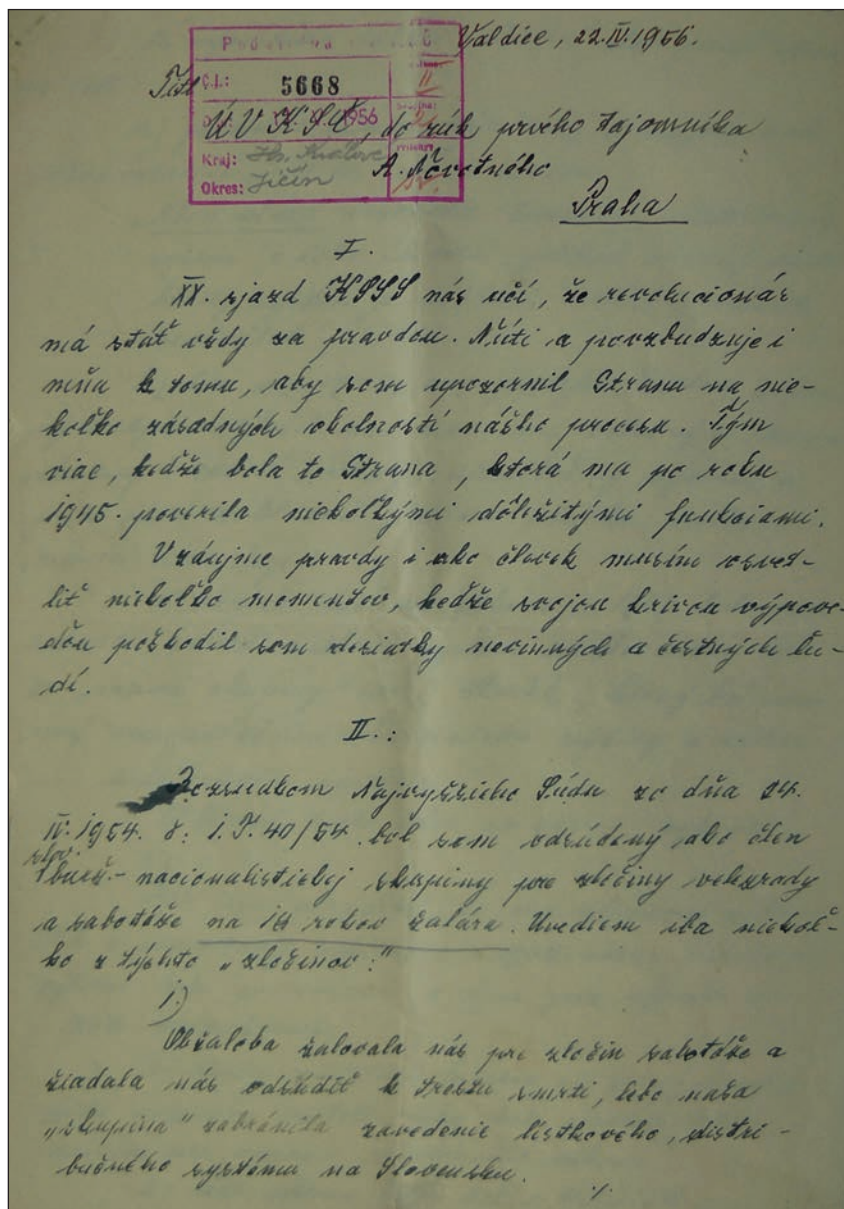 Valdice, 22.IV.1956.
Č.j.: 5668
1956
Kraj: Hr. Králové
Okres: Jičín
Titl.
ÚV KSČ, do rúk prvého tajomníka
A. Novotného
Praha
I.
XX. sjazd KSSS nás učí, že revolucionár
má stáť vždy za pravdou. Núti a povzbudzuje i
mňa k tomu, aby som upozornil Stranu na nie-
koľko zásadných okolností nášho procesu. Tým
viac, kedže bola to Strana, ktorá ma po roku
1945. poverila niekoľkými dôležitými funkciami.
V záujme pravdy i ako človek musím osvet-
liť niekoľko momentov, kedže svojou krivou výpove-
ďou poškodil som desiatky nevinných a čestných ľu-
dí.
II.:
Rozsudkom Najvyššieho Súdu zo dňa 24.
IV. 1954. č: 1. T. 40/54 bol som odsúdený ako člen
slov.
burž.- nacionalistickej skupiny pre zločiny velezrady
a sabotáže na 14 rokov žalára. Uvediem iba niekoľ-
ko z týchto „zločinov:"
1.)
Obžaloba žalovala nás pre zločin sabotáže a
žiadala nás odsúdiť k trestu smrti, lebo naša
„skupina" zabránila zavedenie lístkového, distri-
bučného systému na Slovensku.
./.